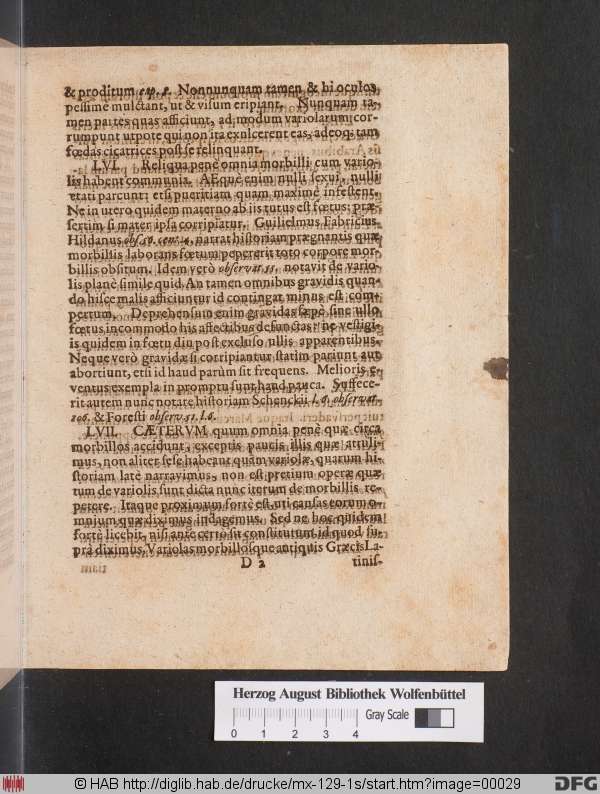 & proditum cap. 8. Nonnunquam tamen & hi oculos
pessimè mulctant, ut & visum eripiant. Nunquam ta-
men partes quas afficiunt, ad modum variolarum cor-
rumpunt utpote qui non ita exulcerent eas, adeoq; tam
fœdas cicatrices post se relinquant.
LVI. Reliqua penè omnia morbilli cum vario-
lis habent communia. AEque enim nulli sexui, nulli
etati parcunt: etsi pueritiam quam maximè infestent.
Ne in utero quidem materno ab iis tutus est fœtus: præ-
sertim si mater ipsa corripiatur. Guilielmus Fabricius
Hildanus narrat historiam prægnantis quæ
morbillis laborans fœtum pepererit toto corpore mor-
billis obsitum. Idem verò observat. 55. notavit de vario-
lis planè simile quid. An tamen omnibus gravidis quan-
do hisce malis afficiuntur id contingat minus est com-
pertum. Deprehensum enim gravidas sæpè sine ullo
fœtus incommodo his affectibus defunctas: ne vestigi-
is quidem in fœtu diu post excluso ullis apparentibus.
Neque verò gravidæ si corripiantur statim pariunt aut
abortiunt, etsi id haud parùm sit frequens. Melioris e-
ventus exempla in promptu sunt haud pauca. Suffece-
rit autem nunc notare historiam Schenckii l. 6. observat.
206. & Foresti observ. 51. l. 6.
LVII. CÆTERVM quum omnia penè quæ circa
morbillos accidunt, exceptis paucis illis quæ attuli-
mus, non aliter sese habeant quàm variolæ, quarum hi-
storiam latè narravimus, non est pretium operæ quæ
tum de variolis sunt dicta nunc iterum de morbillis re-
petere. Itaque proximum fortè est uti causas eorum o-
mnium quæ diximus indagemus. Sed ne hoc quidem
fortè licebit, nisi antè certo sit constitutum id quod su-
prà diximus, Variolas morbillosque antiquis Græcis La-
D 2 tinis-
Herzog August Bibliothek Wolfenbüttel
Gray Scale
0 1 2 3 4
© HAB http://diglib.hab.de/drucke/mx-129-1s/start.htm?image=00029
DFG